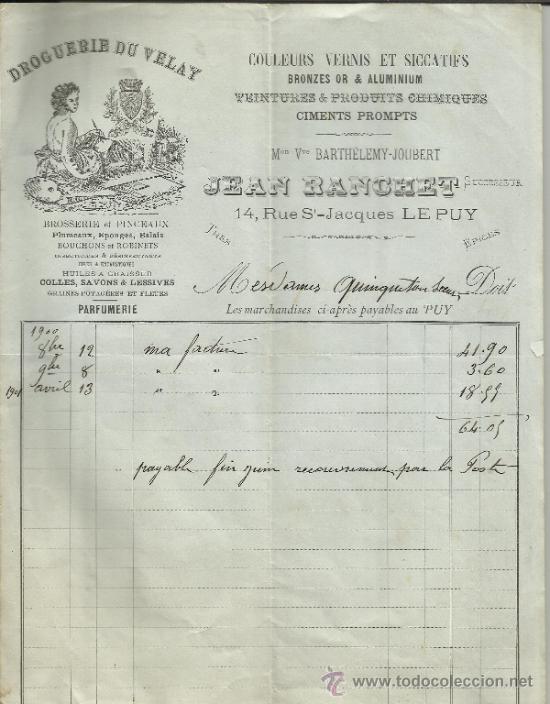 DROGUERIE DU VELAY
COULEURS VERNIS ET SICCATIFS
BRONZES OR & ALUMINIUM
TEINTURES & PRODUITS CHIMIQUES
CIMENTS PROMPTS
Mon Vve BARTHÉLEMY-JOUBERT
JEAN RANCHET SUCCESSEUR
14, Rue St-Jacques LE PUY
BROSSERIE et PINCEAUX
Plumeaux, Eponges, Balais
BOUCHONS et ROBINETS
HUILES A GRAISSER
COLLES, SAVONS & LESSIVES
GRAINES POTAGÈRES ET FLEURS
PARFUMERIE
ÉPICES
Mesdames Quinqueton Soeurs, Doit
Les marchandises ci-après payables au PUY
1900
8bre 12 ma facture 41.90
9bre 8 " " 3.60
1901 avril 13 " " 18.55
64.05
payable fin juin recouvrement par la Poste
todocoleccion
www.todocoleccion.net